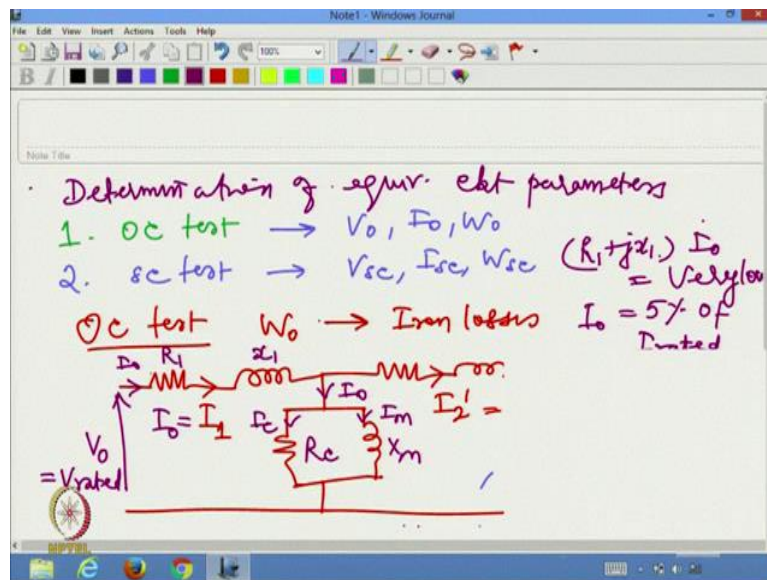 Note1 - Windows Journal
File Edit View Insert Actions Tools Help
100%
B I
Note Title
Determination of equiv. ckt parameters
1. OC test → V₀, I₀, W₀
2. SC test → Vsc, Isc, Wsc
(R₁+jx₁) I₀
= Very low
I₀ = 5% of
Irated
OC test W₀ → Iron losses
I₀ R₁ x₁
I₀ = I₁ Ic I₀ Im I₂' =
V₀ Rc Xm
= Vrated
NPTEL